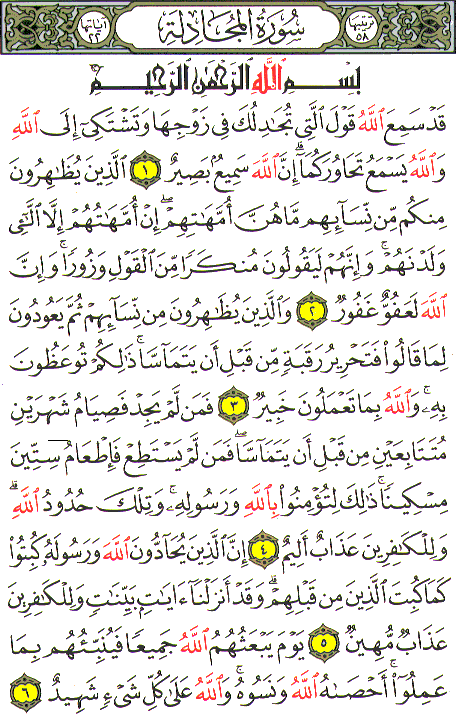 ترتيبها ٥٨ سُورَةُ المُجَادلَة آياتها ٢٢
بِسْمِ ٱللَّهِ ٱلرَّحْمَٰنِ ٱلرَّحِيمِ
قَدْ سَمِعَ ٱللَّهُ قَوْلَ ٱلَّتِى تُجَٰدِلُكَ فِى زَوْجِهَا وَتَشْتَكِىٓ إِلَى ٱللَّهِ
وَٱللَّهُ يَسْمَعُ تَحَاوُرَكُمَآ ۚ إِنَّ ٱللَّهَ سَمِيعٌۢ بَصِيرٌ ١ ٱلَّذِينَ يُظَٰهِرُونَ
مِنكُم مِّن نِّسَآئِهِم مَّا هُنَّ أُمَّهَٰتِهِمْ ۖ إِنْ أُمَّهَٰتُهُمْ إِلَّا ٱلَّٰٓـِٔى
وَلَدْنَهُمْ ۚ وَإِنَّهُمْ لَيَقُولُونَ مُنكَرًا مِّنَ ٱلْقَوْلِ وَزُورًا ۚ وَإِنَّ
ٱللَّهَ لَعَفُوٌّ غَفُورٌ ٢ وَٱلَّذِينَ يُظَٰهِرُونَ مِن نِّسَآئِهِمْ ثُمَّ يَعُودُونَ
لِمَا قَالُوا۟ فَتَحْرِيرُ رَقَبَةٍ مِّن قَبْلِ أَن يَتَمَآسَّا ۚ ذَٰلِكُمْ تُوعَظُونَ
بِهِۦ ۚ وَٱللَّهُ بِمَا تَعْمَلُونَ خَبِيرٌ ٣ فَمَن لَّمْ يَجِدْ فَصِيَامُ شَهْرَيْنِ
مُتَتَابِعَيْنِ مِن قَبْلِ أَن يَتَمَآسَّا ۖ فَمَن لَّمْ يَسْتَطِعْ فَإِطْعَامُ سِتِّينَ
مِسْكِينًا ۚ ذَٰلِكَ لِتُؤْمِنُوا۟ بِٱللَّهِ وَرَسُولِهِۦ ۚ وَتِلْكَ حُدُودُ ٱللَّهِ ۗ
وَلِلْكَٰفِرِينَ عَذَابٌ أَلِيمٌ ٤ إِنَّ ٱلَّذِينَ يُحَآدُّونَ ٱللَّهَ وَرَسُولَهُۥ كُبِتُوا۟
كَمَا كُبِتَ ٱلَّذِينَ مِن قَبْلِهِمْ ۚ وَقَدْ أَنزَلْنَآ ءَايَٰتٍۭ بَيِّنَٰتٍ ۚ وَلِلْكَٰفِرِينَ
عَذَابٌ مُّهِينٌ ٥ يَوْمَ يَبْعَثُهُمُ ٱللَّهُ جَمِيعًا فَيُنَبِّئُهُم بِمَا
عَمِلُوٓا۟ ۚ أَحْصَىٰهُ ٱللَّهُ وَنَسُوهُ ۚ وَٱللَّهُ عَلَىٰ كُلِّ شَىْءٍ شَهِيدٌ ٦